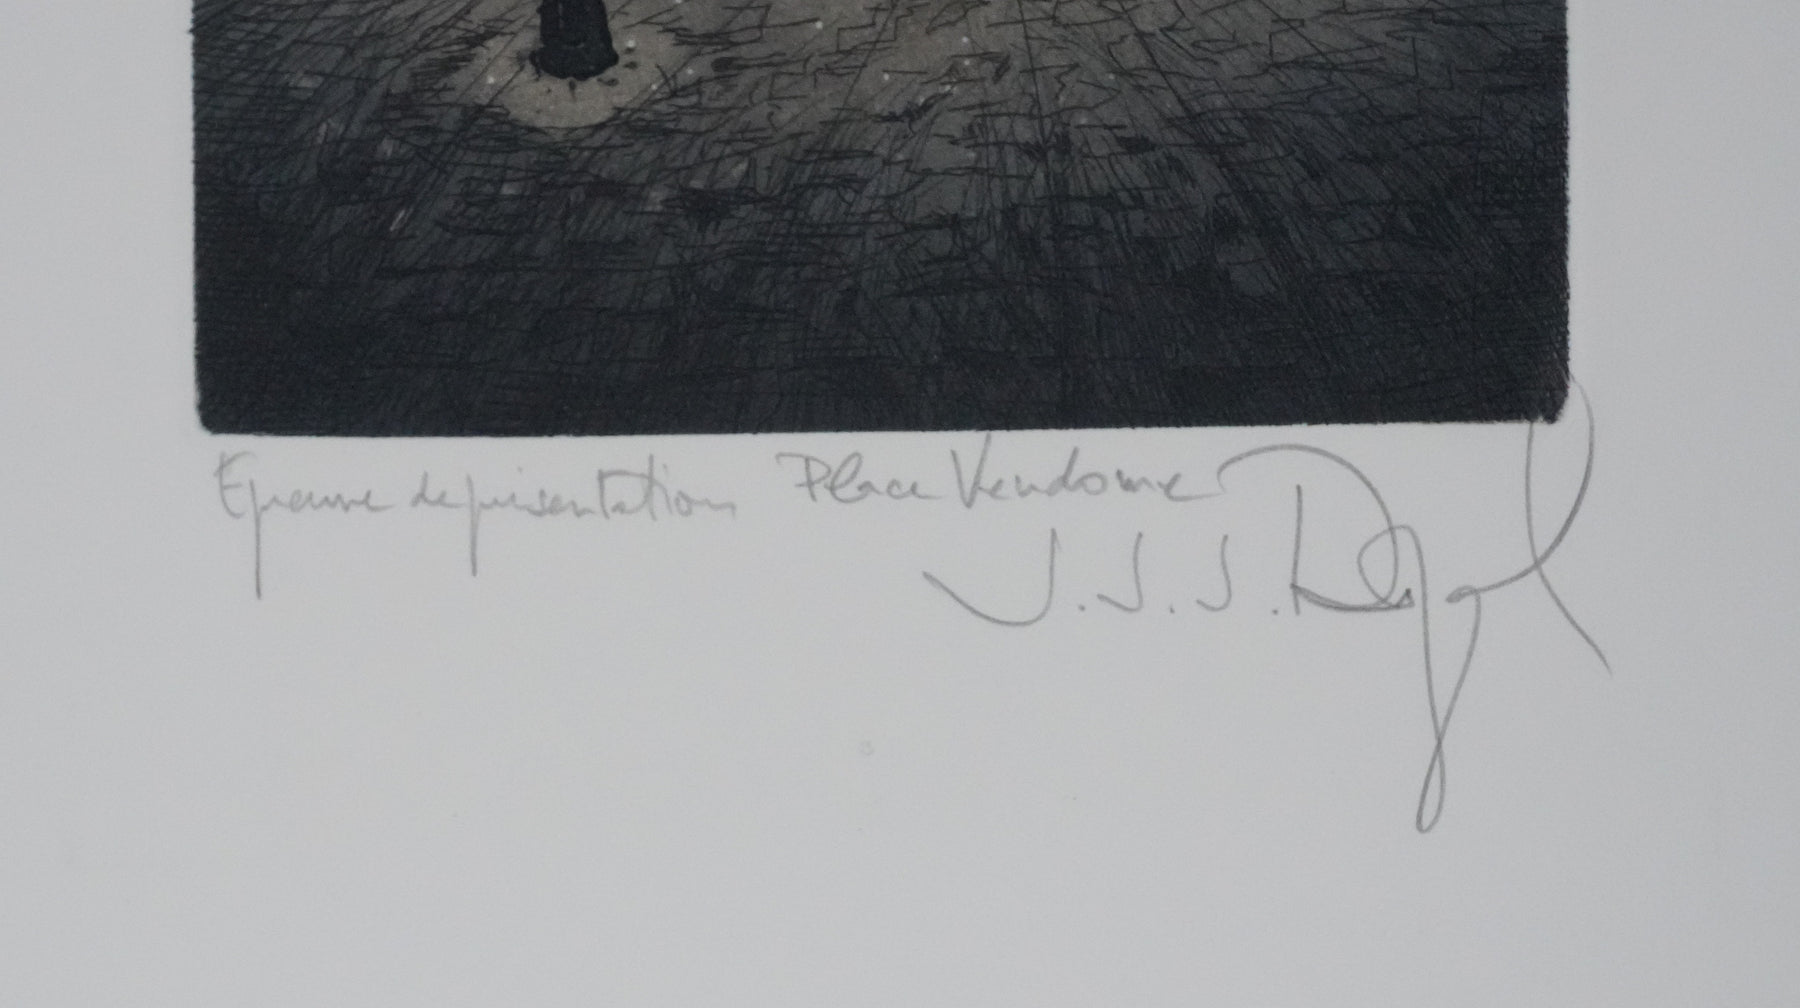 Epreuve de présentation Place Vendome
J.J.J. Rigal